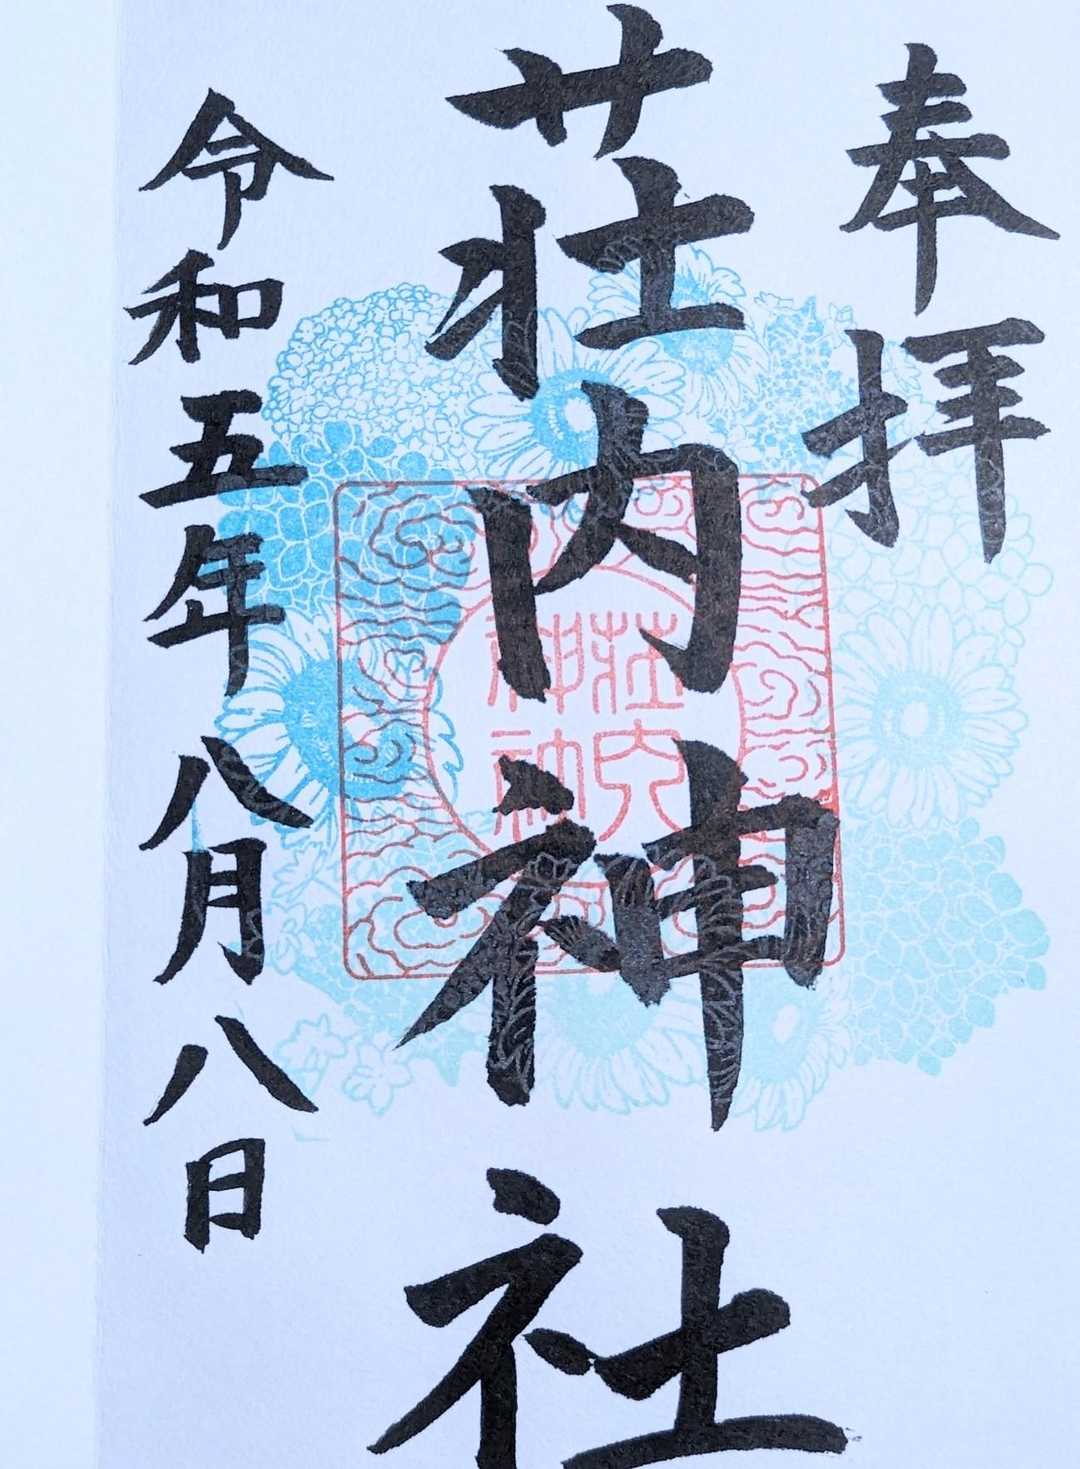 奉拝
荘内神社
荘内
神社
令和五年八月八日